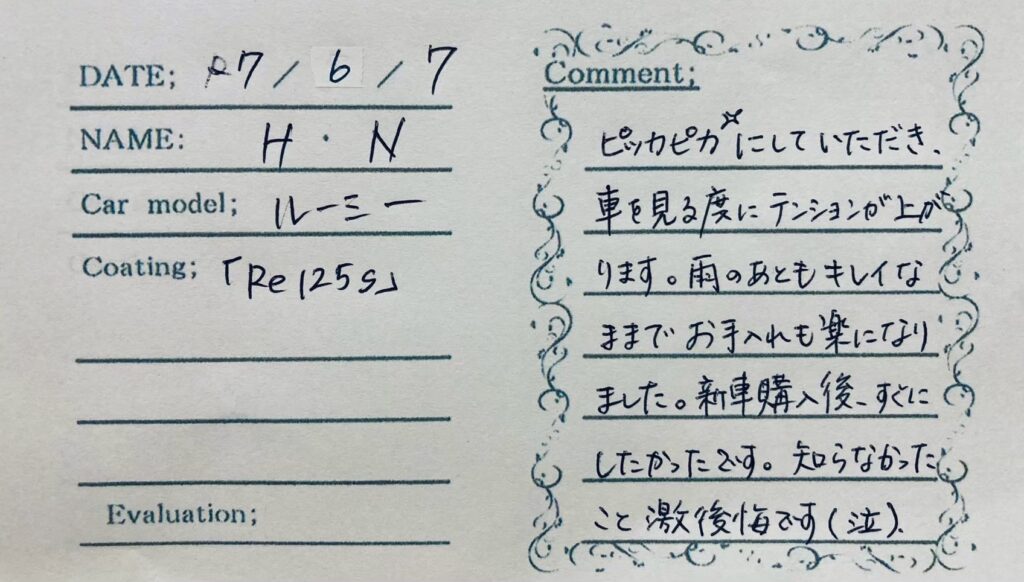 DATE; R7 / 6 / 7
NAME: H・N
Car model; ルーミー
Coating; 「Re125s」
Evaluation;
Comment;
ピッカピカ☆にしていただき、
車を見る度にテンションが上が
ります。雨のあともキレイな
ままでお手入れも楽になり
ました。新車購入後、すぐに
したかったです。知らなかった
こと激後悔です(泣).